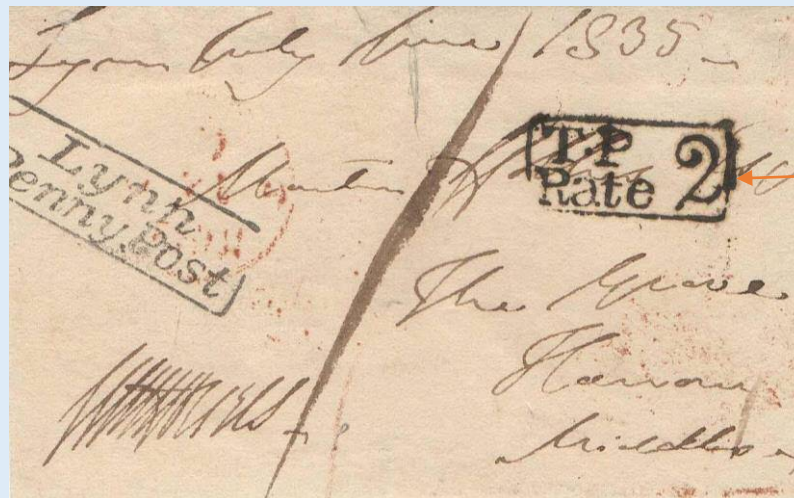 Lynn July nine 1835
Lynn
Penny Post
T.P
Rate 2
Martin
The Grove
Harrow
Middlesex